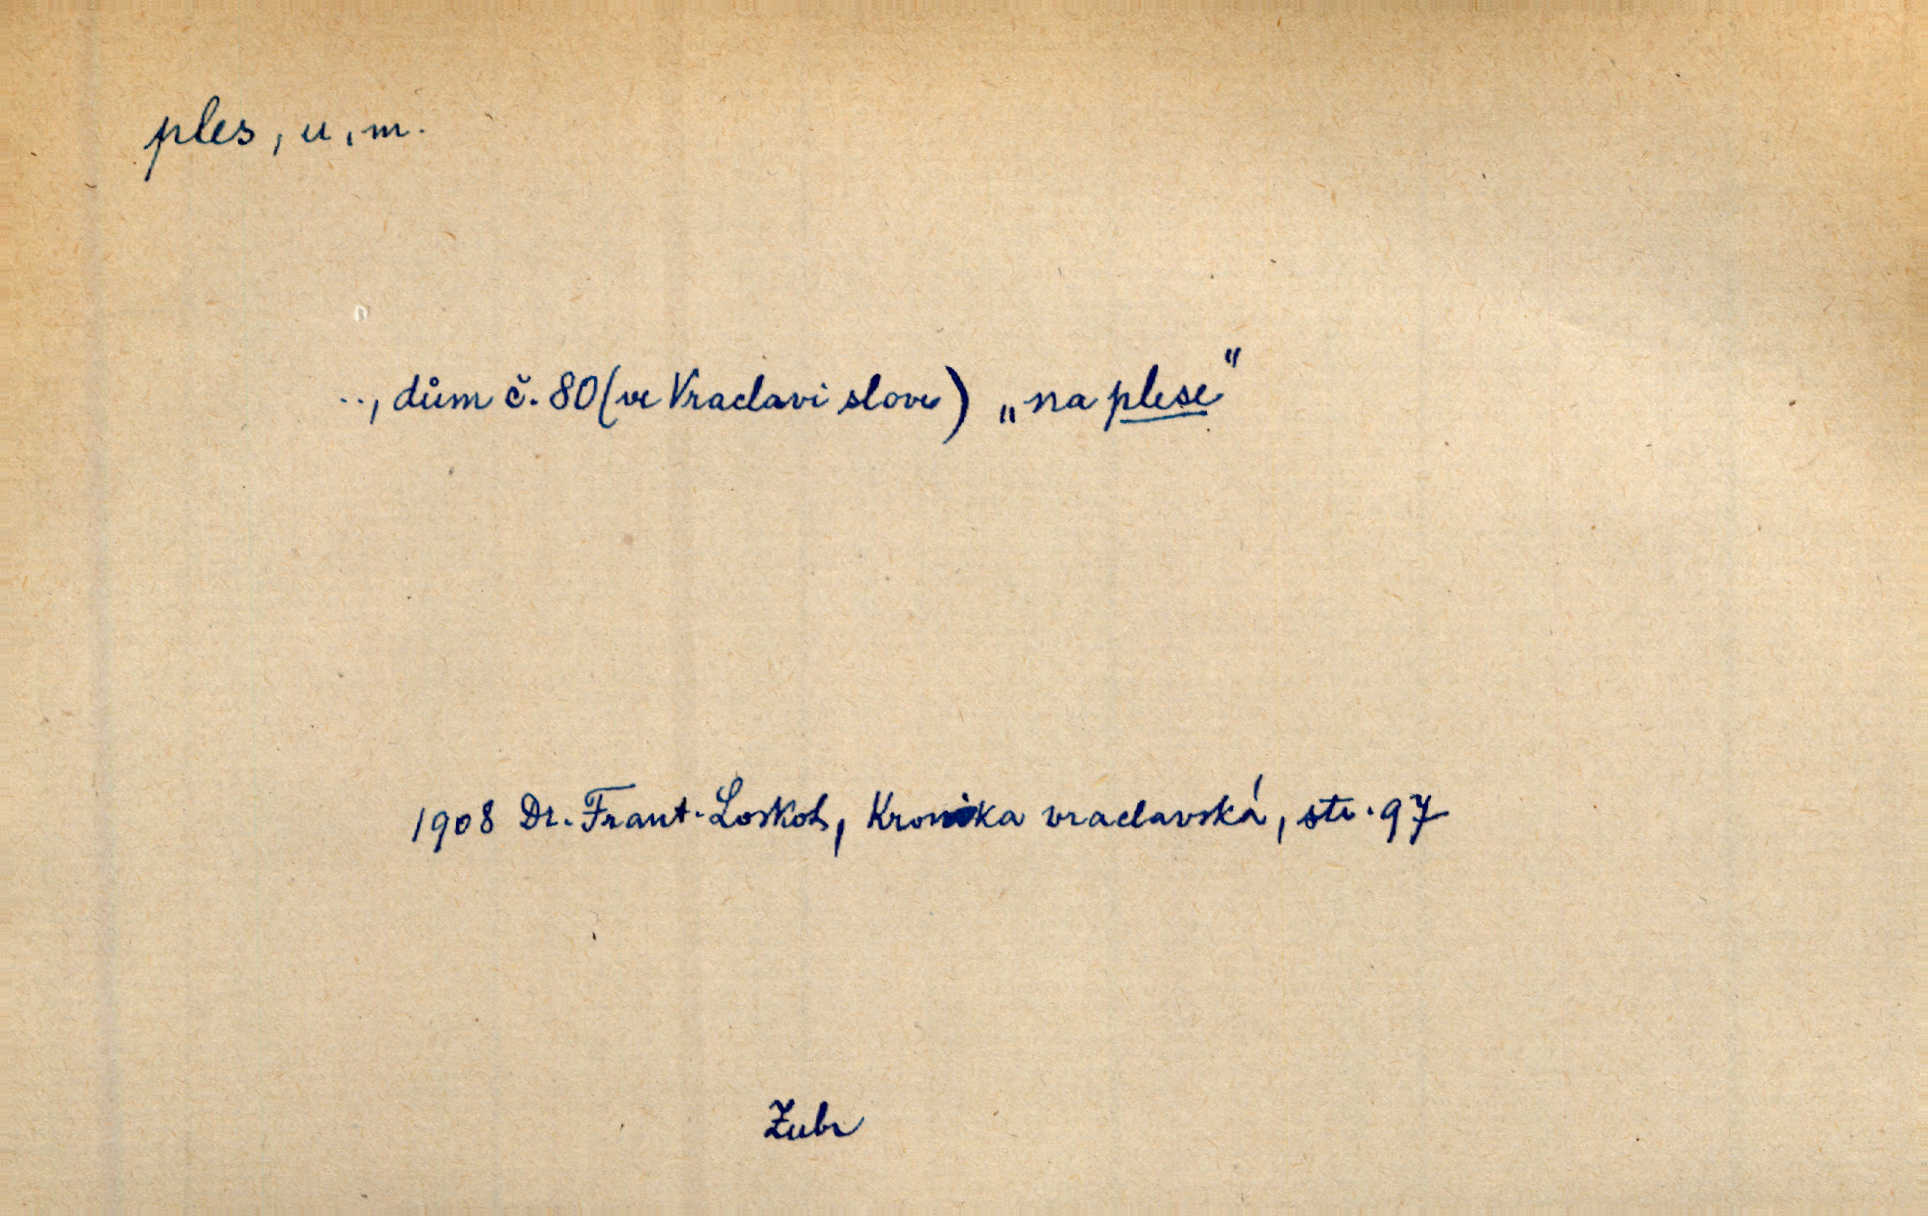 ples, u, m.
.., dům č. 80 (ve Vraclavi slove) „na plese"
1908 Dr. Frant. Loskot, Kronika vraclavská, str. 97
Zubr